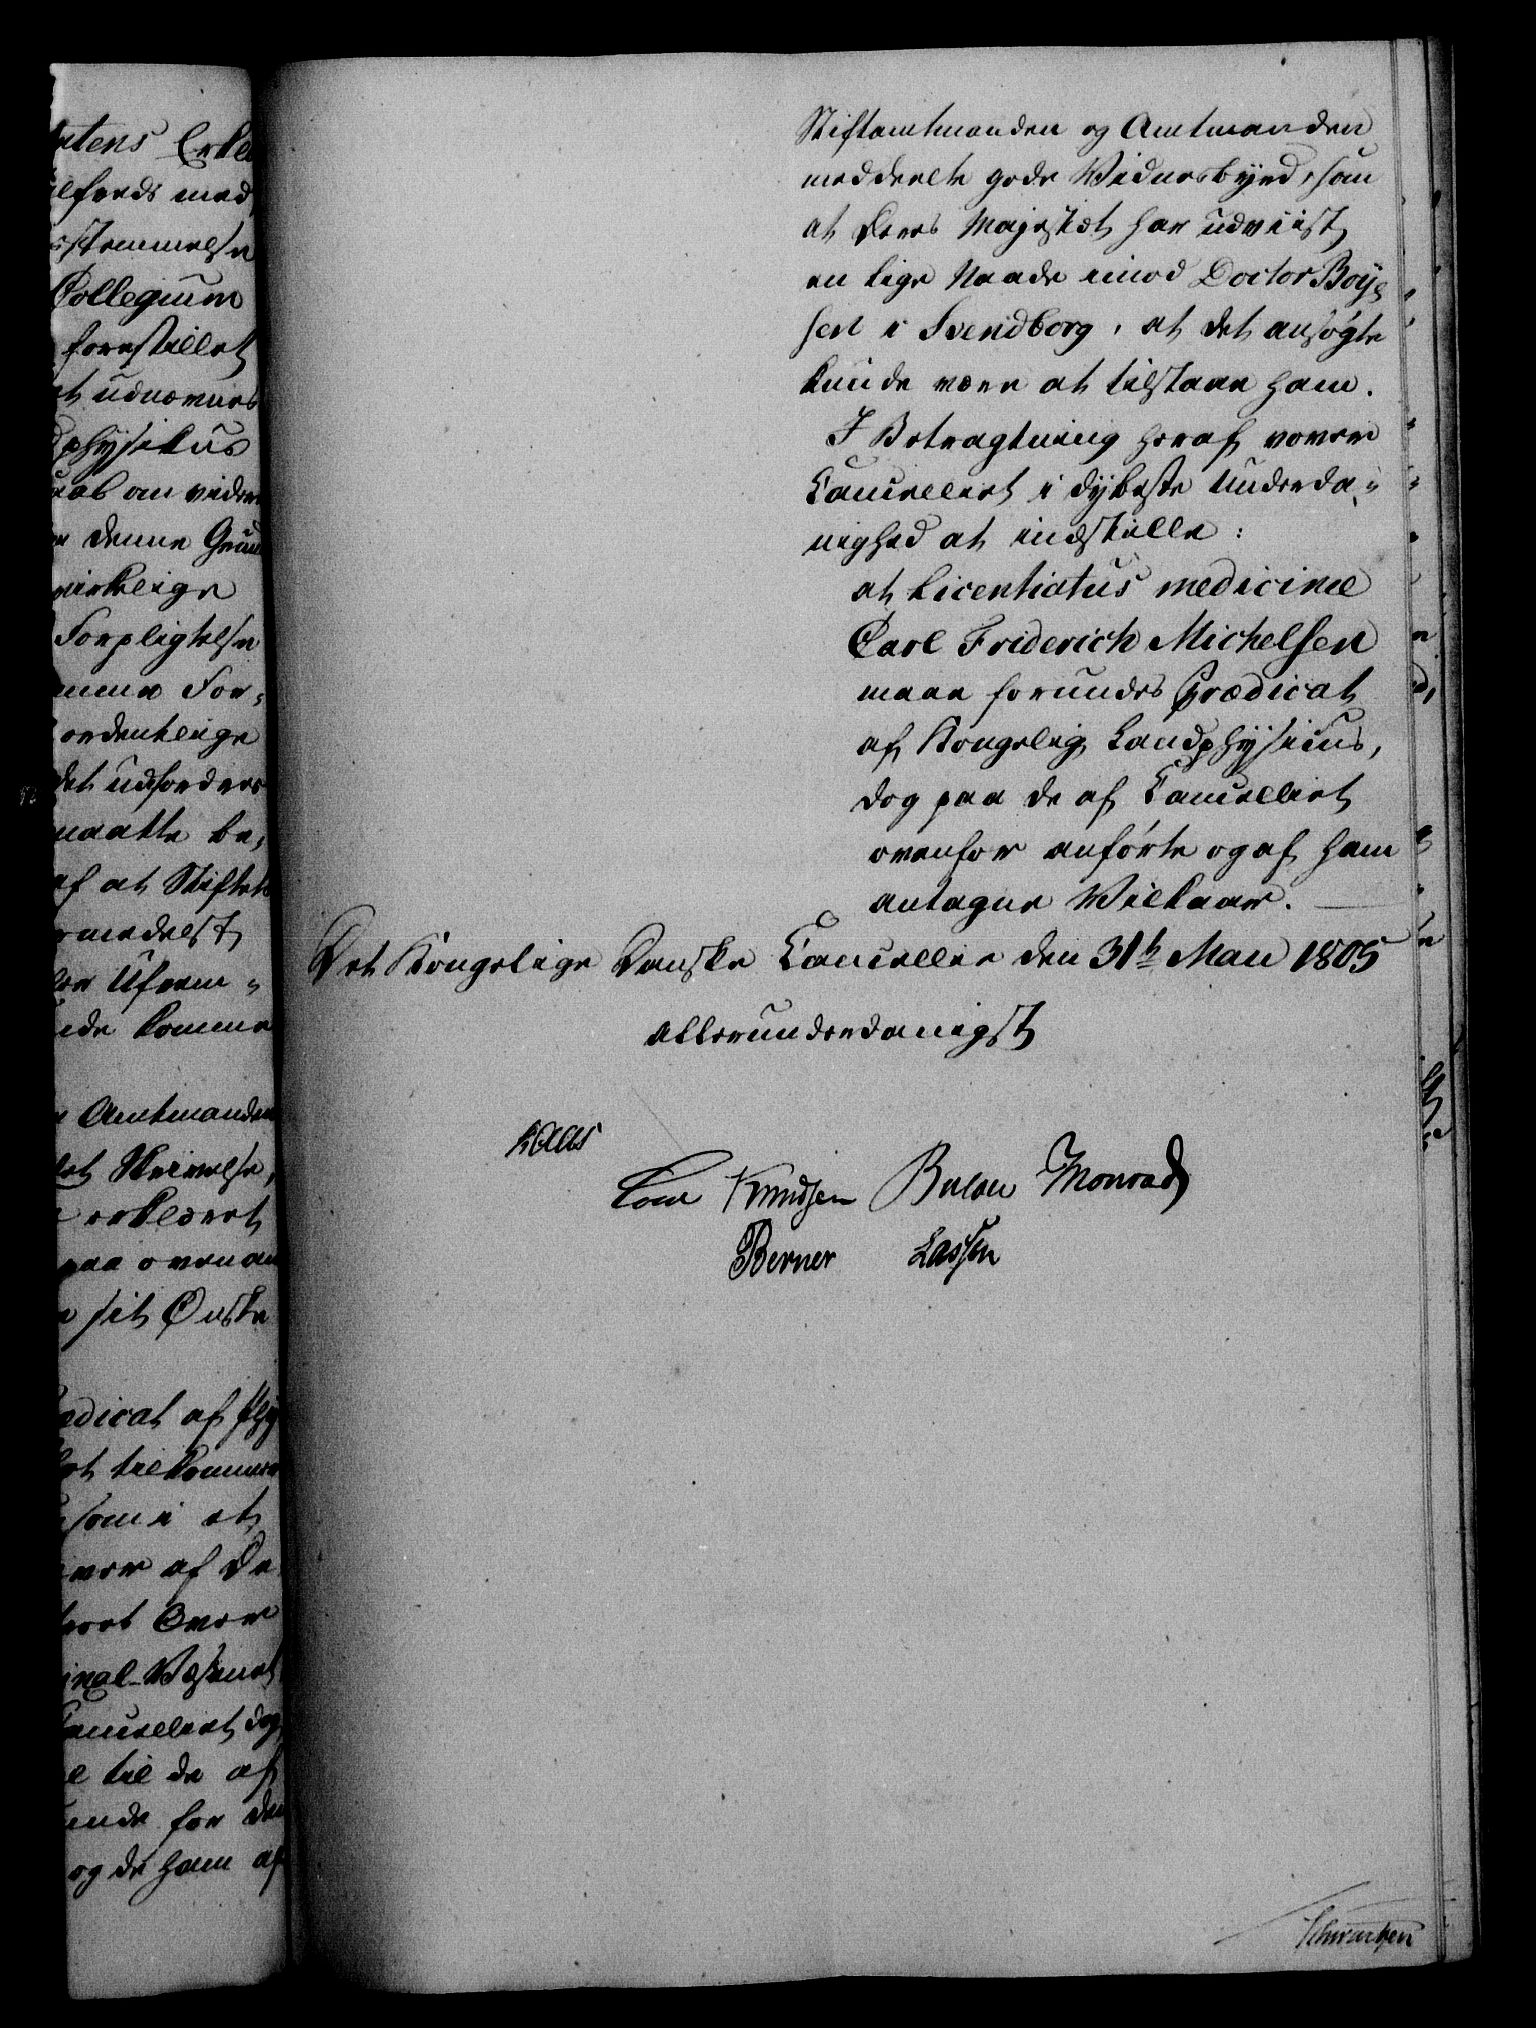 Stiftamtmanden og Amtmanden
meddeelte gode Vidnesbyrd, som
at Deres Majestæt har udviist
en lige Naade imod Doctor Boye
sen i Svendborg, at det ansøgte
kunde være at tilstaae ham.
I Betragtning heraf vover
Cancelliet i dybeste Underda„
nighed at indstille:
at Licentiatus medicinæ
Carl Friderich Michelsen
maae forundes Prædicat
af Kongelig Landphysicus,
dog paa de af Cancelliet
ovenfor anførte og af ham
antagne Vilkaar.
Det Kongelige Danske Cancellie den 31te Maii 1805
allerunderdanigst
Kaas
Cold Knudsen Bülow Monrad
Berner Lassen
tens Erklæ
ilfreds med
sstemmelse
Collegium
forestillet
at udnævnes
dphysikus
om videre
denne Grund
virkelige
Forpligtelse
For„
ordentlige
det udfordres
maatte be„
af at Stiftets
rmedelst
Ufrem„
komme
Amtmanden
Skrivelse,
erklæret
paa ovenan
sit Ønske
ædicat af Phy
tilkommer
som i et
af De
Over
Væsenet
Cancelliet dog
til de af
for den
og de ham af